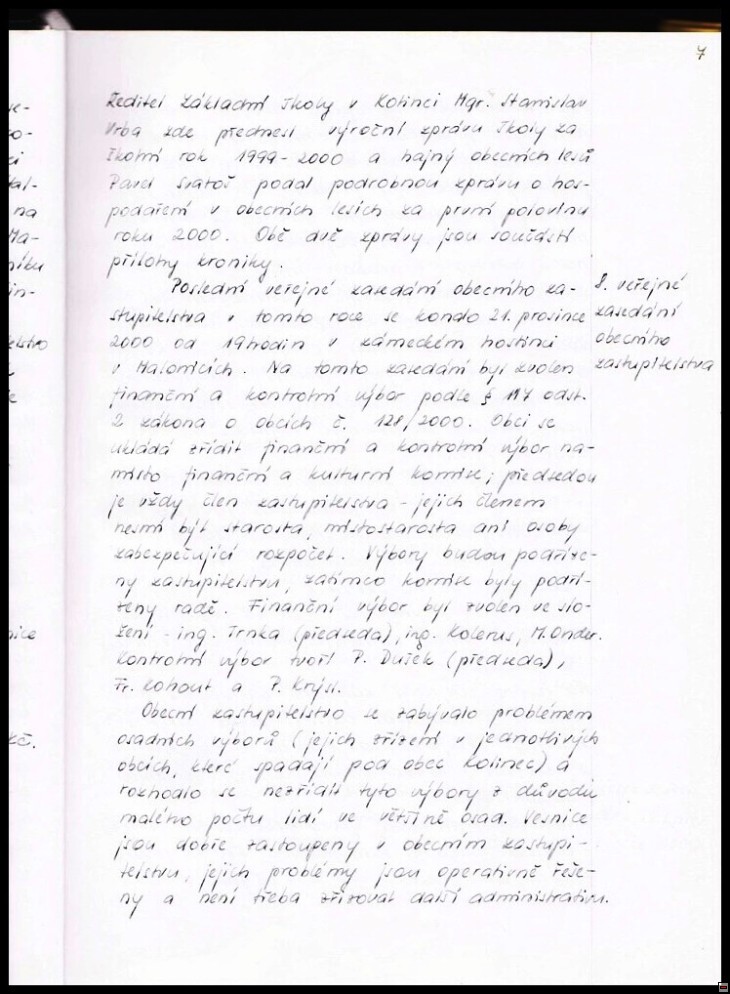 7
Ředitel Základní školy v Kolinci Mgr. Stanislav
Vrba zde přednesl výroční zprávu školy za
školní rok 1999-2000 a hajný obecních lesů
Pavel Svatoš podal podrobnou zprávu o hos-
podaření v obecních lesích za první polovinu
roku 2000. Obě dvě zprávy jsou součástí
přílohy kroniky.
Poslední veřejné zasedání obecního za-
stupitelstva v tomto roce se konalo 21. prosince
2000 od 19 hodin v zámeckém hostinci
v Malonicích. Na tomto zasedání byl zvolen
finanční a kontrolní výbor podle § 117 odst.
2 zákona o obcích č. 128/2000. Obci se
ukládá zřídit finanční a kontrolní výbor na-
místo finanční a kulturní komise; předsedou
je vždy člen zastupitelstva - jejich členem
nesmí být starosta, místostarosta ani osoby
zabezpečující rozpočet. Výbory budou podříze-
ny zastupitelstvu, zatímco komise byly podří-
zeny radě. Finanční výbor byl zvolen ve slo-
žení - ing. Trnka (předseda), ing. Kolerus, M. Onder.
Kontrolní výbor tvoří P. Dušek (předseda),
Fr. Kohout a P. Krýsl.
Obecní zastupitelstvo se zabývalo problémem
osadních výborů (jejich zřízení v jednotlivých
obcích, které spadají pod obec Kolinec) a
rozhodlo se nezřídit tyto výbory z důvodu
malého počtu lidí ve většině osad. Vesnice
jsou dobře zastoupeny v obecním zastupi-
telstvu, jejich problémy jsou operativně řeše-
ny a není třeba zřizovat další administrativu.
8. veřejné
zasedání
obecního
zastupitelstva